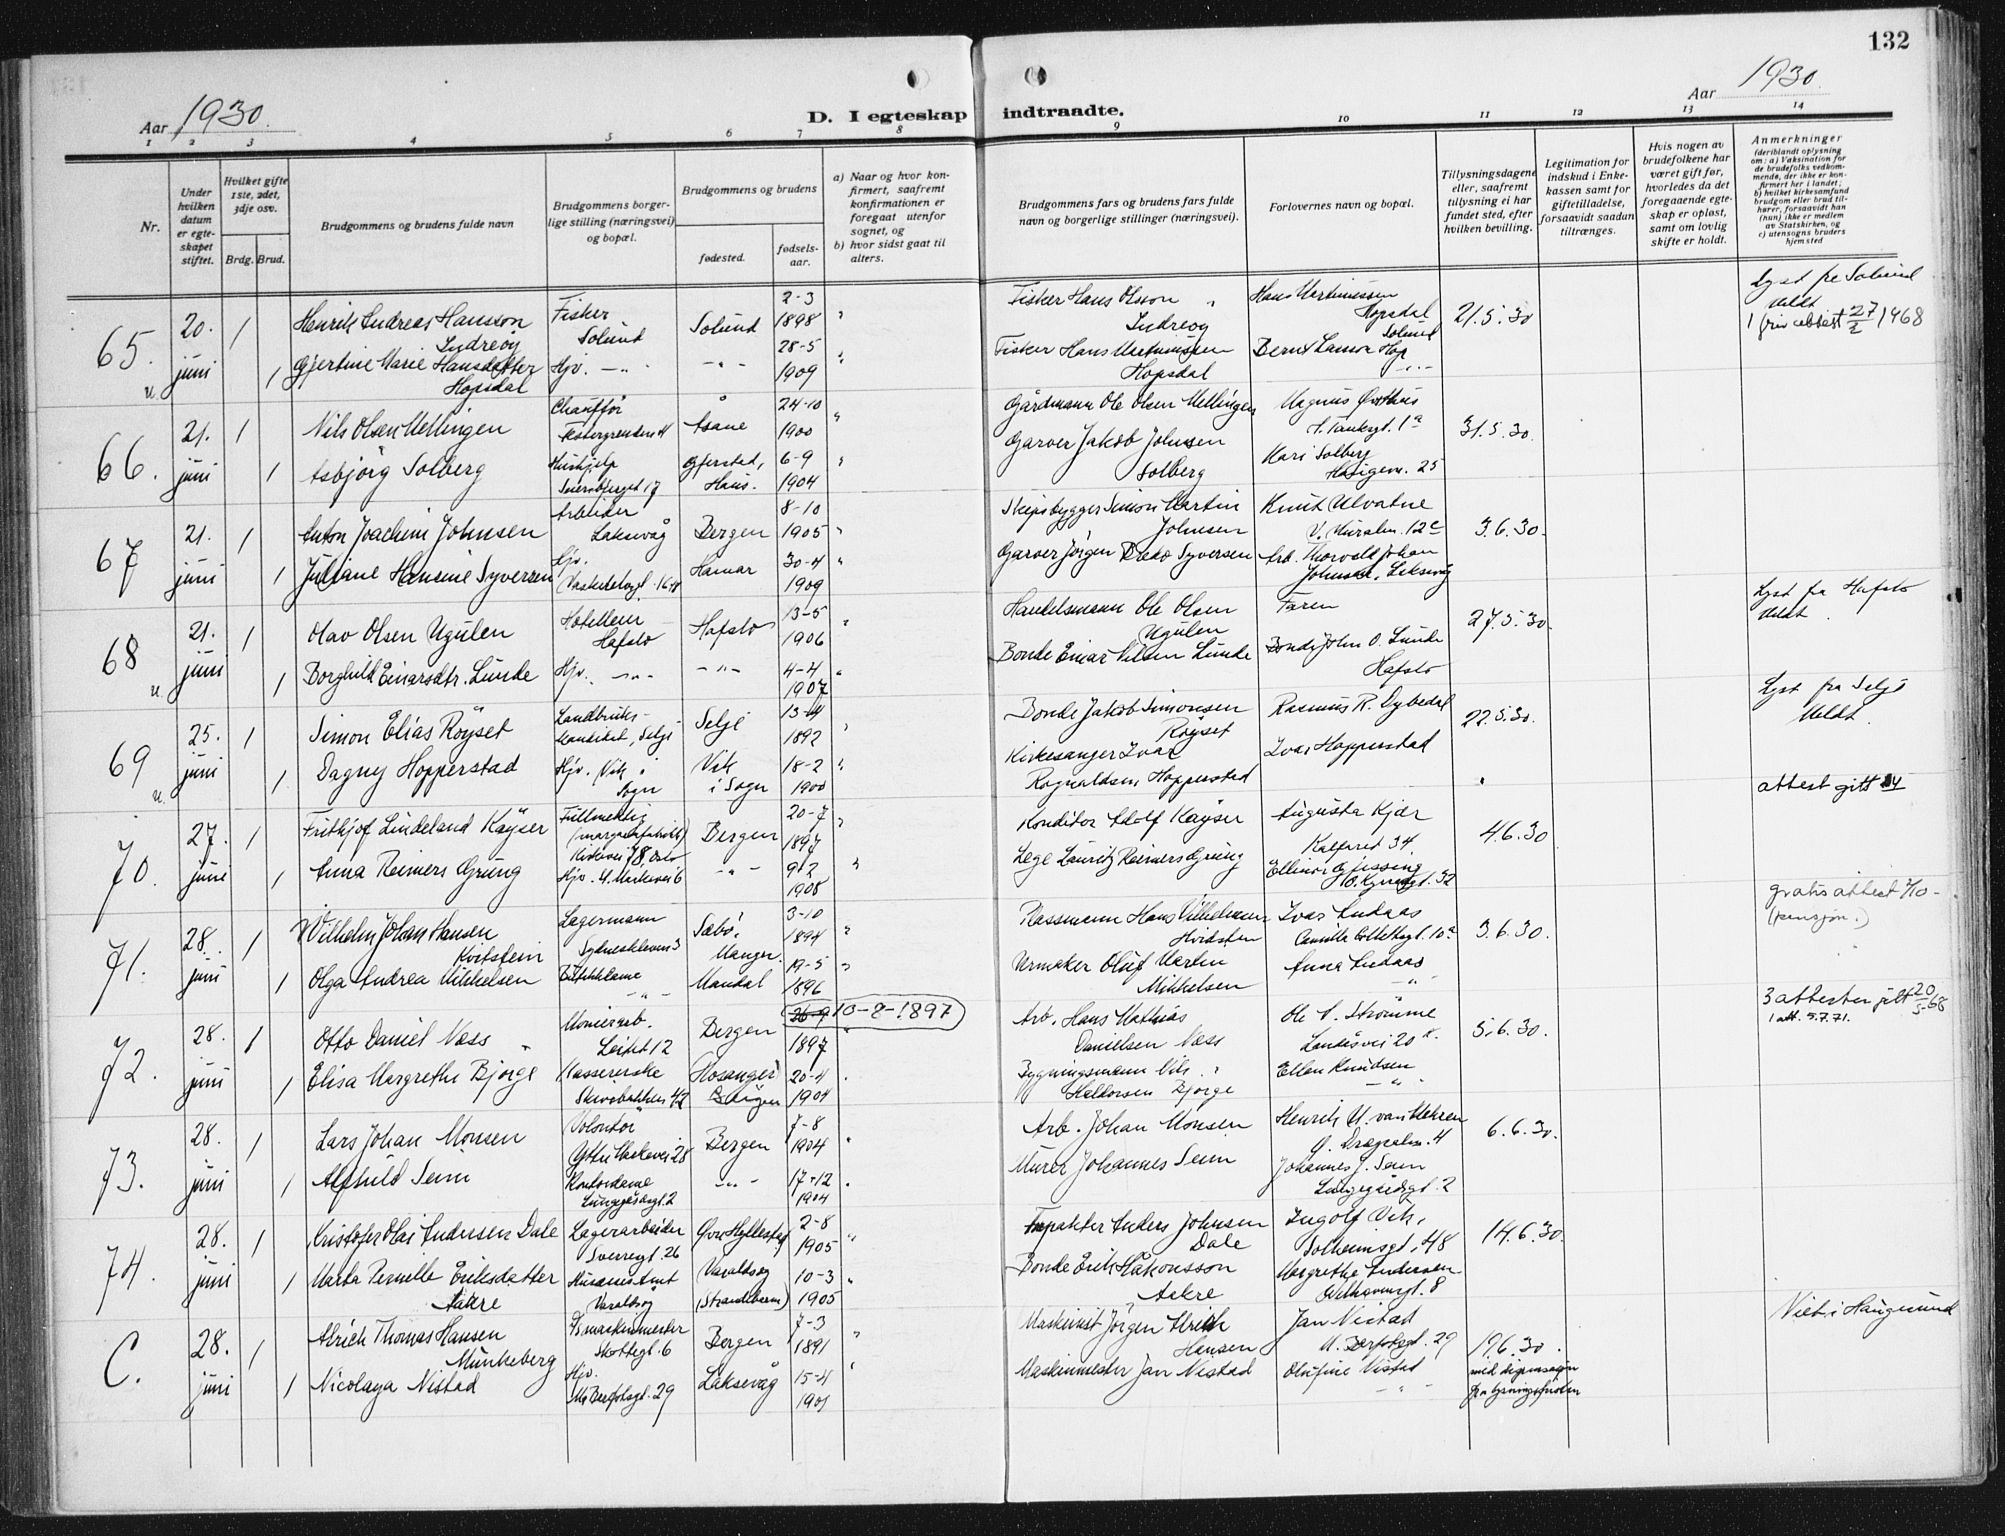 132
Aar 1930.
D. I egteskap indtraadte.
Aar 1930.
1 2 3 4 5 6 7 8 9 10 11 12 13 14
Nr.
Under hvilken datum er egteskapet stiftet.
Hvilket gifte 1ste, 2det, 3dje osv.
Brdg. Brud.
Brudgommens og brudens fulde navn
Brudgommens borgerlige stilling (næringsvei) og bopæl.
Brudgommens og brudens
fødested.
fødselsaar.
a) Naar og hvor konfirmert, saafremt konfirmationen er foregaat utenfor sognet, og
b) hvor sidst gaat til alters.
Brudgommens fars og brudens fars fulde navn og borgerlige stillinger (næringsvei).
Forlovernes navn og bopæl.
Tillysningsdagene eller, saafremt tillysning ei har fundet sted, efter hvilken bevilling.
Legitimation for indskud i Enkekassen samt for giftetilladelse, forsaavidt saadan tiltrænges.
Hvis nogen av brudefolkene har været gift før, hvorledes da det foregaaende egteskap er opløst, samt om lovlig skifte er holdt.
Anmerkninger
(deriblandt oplysning om: a) Vaksination for de brudefolks vedkommende, der ikke er konfirmert her i landet; b) hvilket kirkesamfund brudgom eller brud tilhører, forsaavidt han (hun) ikke er medlem av Statskirken, og c) utensogns bruders hjemsted
65. 20. juni 1 Henrik Andreas Hansson Indreøy Fisker Solund Solund 2-3 1898 Fisker Hans Olsson Indreøy Hans Martinussen Hopsdal Solund 21.5.30 Lyst fra Solund Meldt
u. 1 Gjertine Marie Hansdatter Hopsdal Hjv. -"- -"- 28-5 1909 Fisker Hans Martinussen Hopsdal Bernt Larsson Hop -"- 1 friv attest 27/2 1968
66. 21. juni 1 Nils Olsen Mellingen Chauffør Åsane 24-10 1900 Gårdmann Ole Olsen Mellingen Magnus 31.5.30.
1 Asbjörg Solberg Hushjelp 17 Gjerstad, Haus. 6-9 1904 Garver Jakob Johnsen Solberg Mari Solberg 25
67 21. juni 1 Anton Joachim Johnsen Arbeider Laksevåg Bergen 8-10 1905 Skipsbygger Simon Martin Johnsen Knut Alvatne V. Muralm. 12c 3.6.30.
1 Juliane Hansine Syversen Hjv. Hamar 30-4 1909 Garver Jörgen Syversen Arb. Thorvald Johan Johnsen, Laksevåg
68 21. juni 1 Olav Olsen Ugulen Hafslo Hafslo 13-5 1906 Handelsmann Ole Olsen Ugulen Faren 27.5.30. Lyst fra Hafslo Meldt.
u. 1 Borghild Einarsdtr. Lunde Hjv. -"- -"- 4-4 1907 Bonde Einar Nilsen Lunde Bonde John O. Lunde Hafslo
69 25. juni 1 Simon Elias Röyset Landbruks- , Selje Selje 13-4 1892 Bonde Jakob Simonsen Röyset Rasmus R. Dybedal 22.5.30. Lyst fra Selje Meldt.
u. 1 Dagny Hopperstad Hjv. Vik i Sogn Vik i Sogn 18-2 1900 Kirkesanger Ivar Rognaldsen Hopperstad Ivar Hopperstad
attest gitt
70. 27. juni 1 Frithjof Lindeland Kayser Fullmektig (margarinfabrikk) Kirkevei 78, Oslo Bergen 20-7 1897 Konditor Adolf Kayser Augusta Kjær Kalfaret 34. 4.6.30
1 Anna Reimers Grung Hjv. 6 -"- 9-2 1908 Lege Lauritz Reimers Grung Ellinor Gjessing 32
71. 28. juni 1 Wilhelm Johan Hansen Kvitstein Lagermann Sydneskleven 3 Sæbö, Manger. 3-10 1894 Hans Vilhelmsen Hvidsten Ivar Lndaas Camilla Collettsgt. 10a 3.6.30. gratis attest (pensjon.)
1 Olga Andrea Mikkelsen -"- Mandal 19-5 1896 Urmaker Oluf Martin Mikkelsen Anna Lndaas -"-
72. 28. juni 1 Otto Daniel Næss Bergen 26-9 10-8-1897 1897 Arb. Hans Mathias Danielsen Næss Ole A. Strömme Landåsvei 20 5.6.30. 3 attester gitt 20/5-68
1 att. 5.7.71.
1 Elisa Margrethe Bjørge Kassererske Skivebakken 42 Hosanger Bergen 20-4 1904 Bygningsmann Nils Halvorsen Bjørge Ellen Knudsen -"-
73. 28. juni 1 Lars Johan Monsen Volontør Ytre Markevei 28 Bergen 7-8 1904 Arb. Johan Monsen Henrik M. von Mehren Ö. Dræggealm. 4 6.6.30.
1 Alfhild Seim Kontordame Lungegårdsgt. 2 -"- 17-12 1904 Murer Johannes Seim Johannes J. Seim Lungegårdsgt. 2
74. 28. juni 1 Kristofer Olai Andersen Dale Lagerarbeider Sverresgt. 26 Hyllestad 2-8 1905 Anders Johnsen Dale Ingolf Vik, Solheimsgt. 48 14.6.30.
1 Marta Pernille Eriksdatter Aakre Varaldsöy Varaldsöy (Strandebarm) 10-3 1905 Bonde Erik Håkonsson Aakre Margrethe Andersen 8
C. 28. juni 1 Alrich Thomas Hansen Munkeberg Skottegt. 6 Bergen 7-3 1891 Maskinist Jörgen Ulrich Hansen Jan Nistad M. Bergfolsgt. 29 19.6.30. Viet i Haugesund
1 Nicolaya Nistad Hjv. 29 Laksevåg 15-4 1901 Maskinmester Jan Nistad Olufine Nistad -"- med dispensasjon fra lysningsfristen